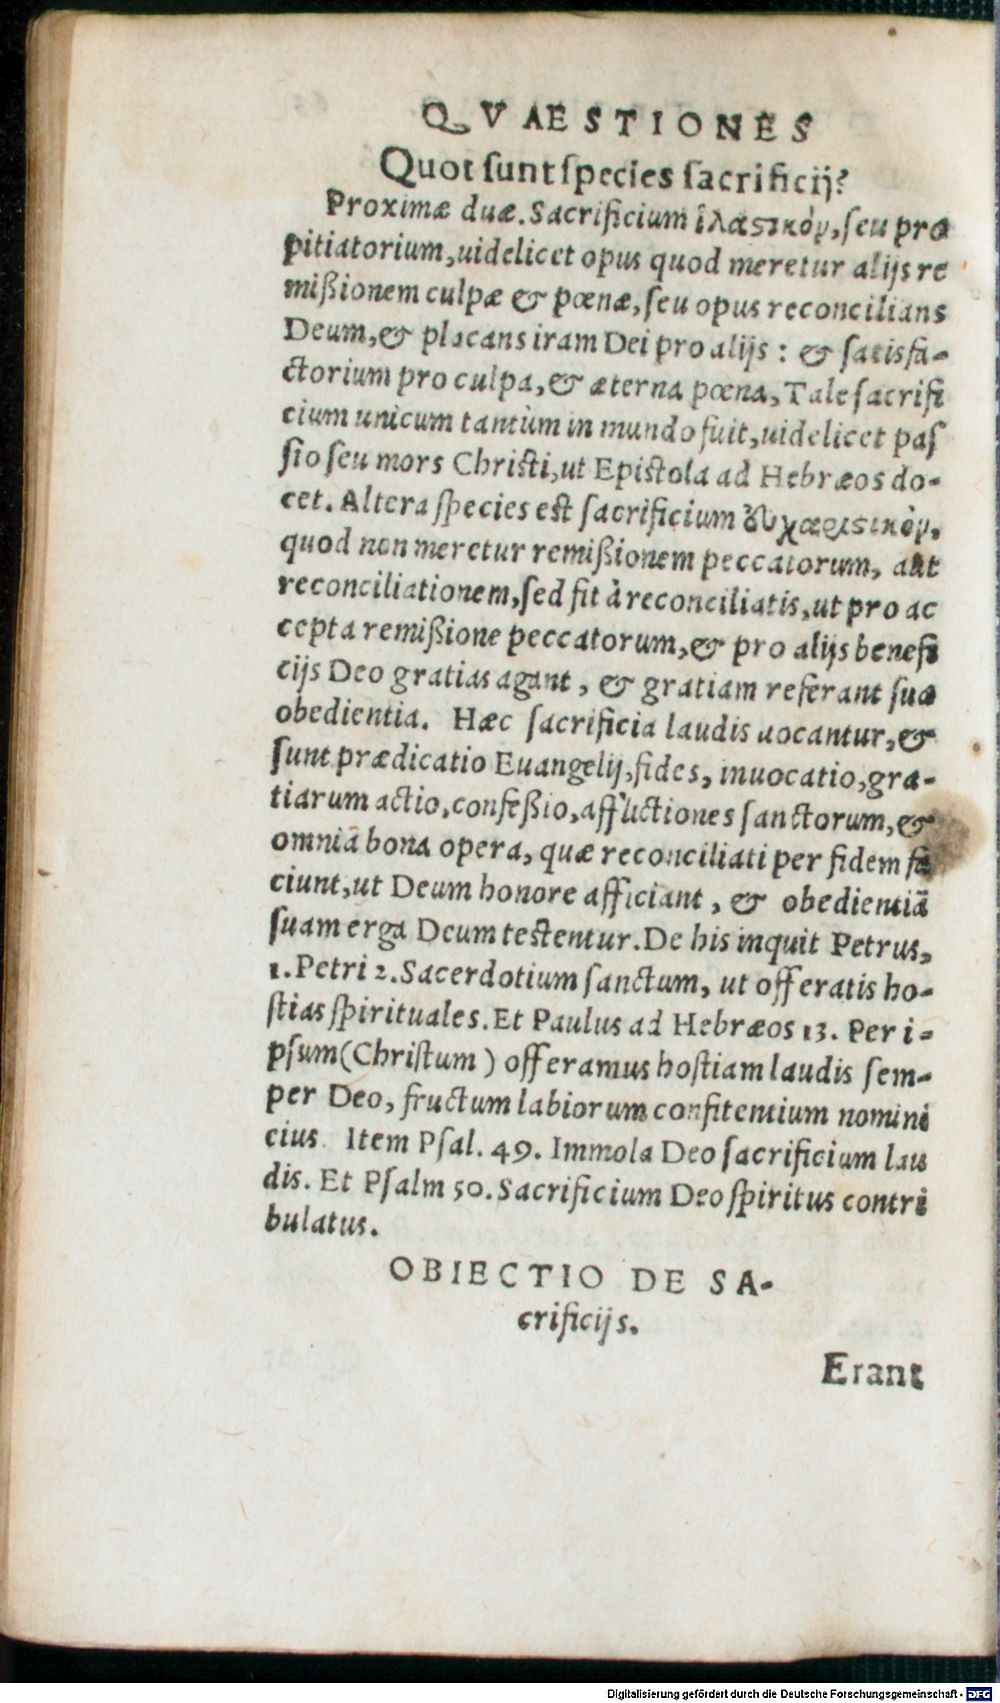 QVAESTIONES
Quot ſunt ſpecies ſacrificij?
Proximæ duæ. Sacrificium ἱλαϛικόν, ſeu pro
pitiatorium, uidelicet opus quod meretur alijs re
mißionem culpæ & pœnæ, ſeu opus reconcilians
Deum, & placans iram Dei pro alijs : & ſatisfa-
ctorium pro culpa, & æterna pœna, Tale ſacrifi
cium unicum tantùm in mundo fuit, uidelicet paſ
ſio ſeu mors Chriſti, ut Epiſtola ad Hebræos do-
cet. Altera ſpecies eſt ſacrificium ἐυχαριϛικόν,
quod non meretur remißionem peccatorum, aut
reconciliationem, ſed fit à reconciliatis, ut pro ac
cepta remißione peccatorum, & pro alijs benefi
cijs Deo gratias agant, & gratiam referant ſua
obedientia. Hæc ſacrificia laudis uocantur, &
ſunt prædicatio Euangelij, fides, inuocatio, gra-
tiarum actio, confeßio, afflictiones ſanctorum, &
omnia bona opera, quæ reconciliati per fidem fa
ciunt, ut Deum honore afficiant, & obedientiã
ſuam erga Deum teſtentur. De his inquit Petrus,
1. Petri 2. Sacerdotium ſanctum, ut offeratis ho-
ſtias ſpirituales. Et Paulus ad Hebræos 13. Per i-
pſum (Chriſtum) offeramus hoſtiam laudis ſem-
per Deo, fructum labiorum confitentium nomini
eius. Item Pſal. 49. Immola Deo ſacrificium lau
dis. Et Pſalm 50. Sacrificium Deo ſpiritus contri
bulatus.
OBIECTIO DE SA-
crificijs.
Erant
Digitalisierung gefördert durch die Deutsche Forschungsgemeinschaft - DFG